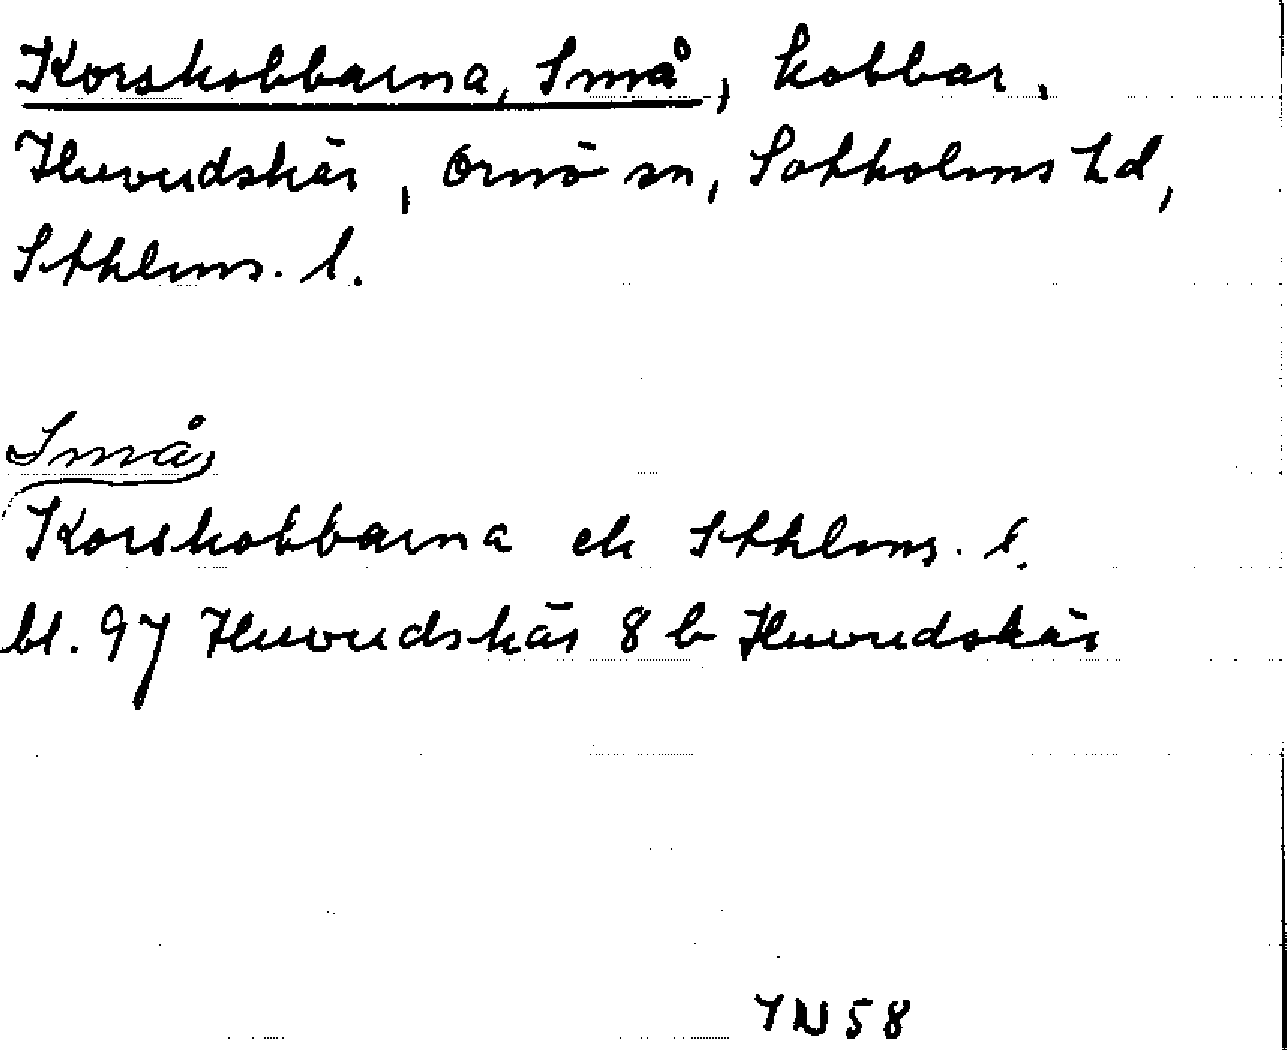 Korskobbarna, Små, kobbar,
Huvudskär, Ornö sn, Sotholms hd,
Sthlms. l.
Små,
Korskobbarna ek Sthlms. l.
bl. 97 Huvudskär 8 b Huvudskär
IN 58